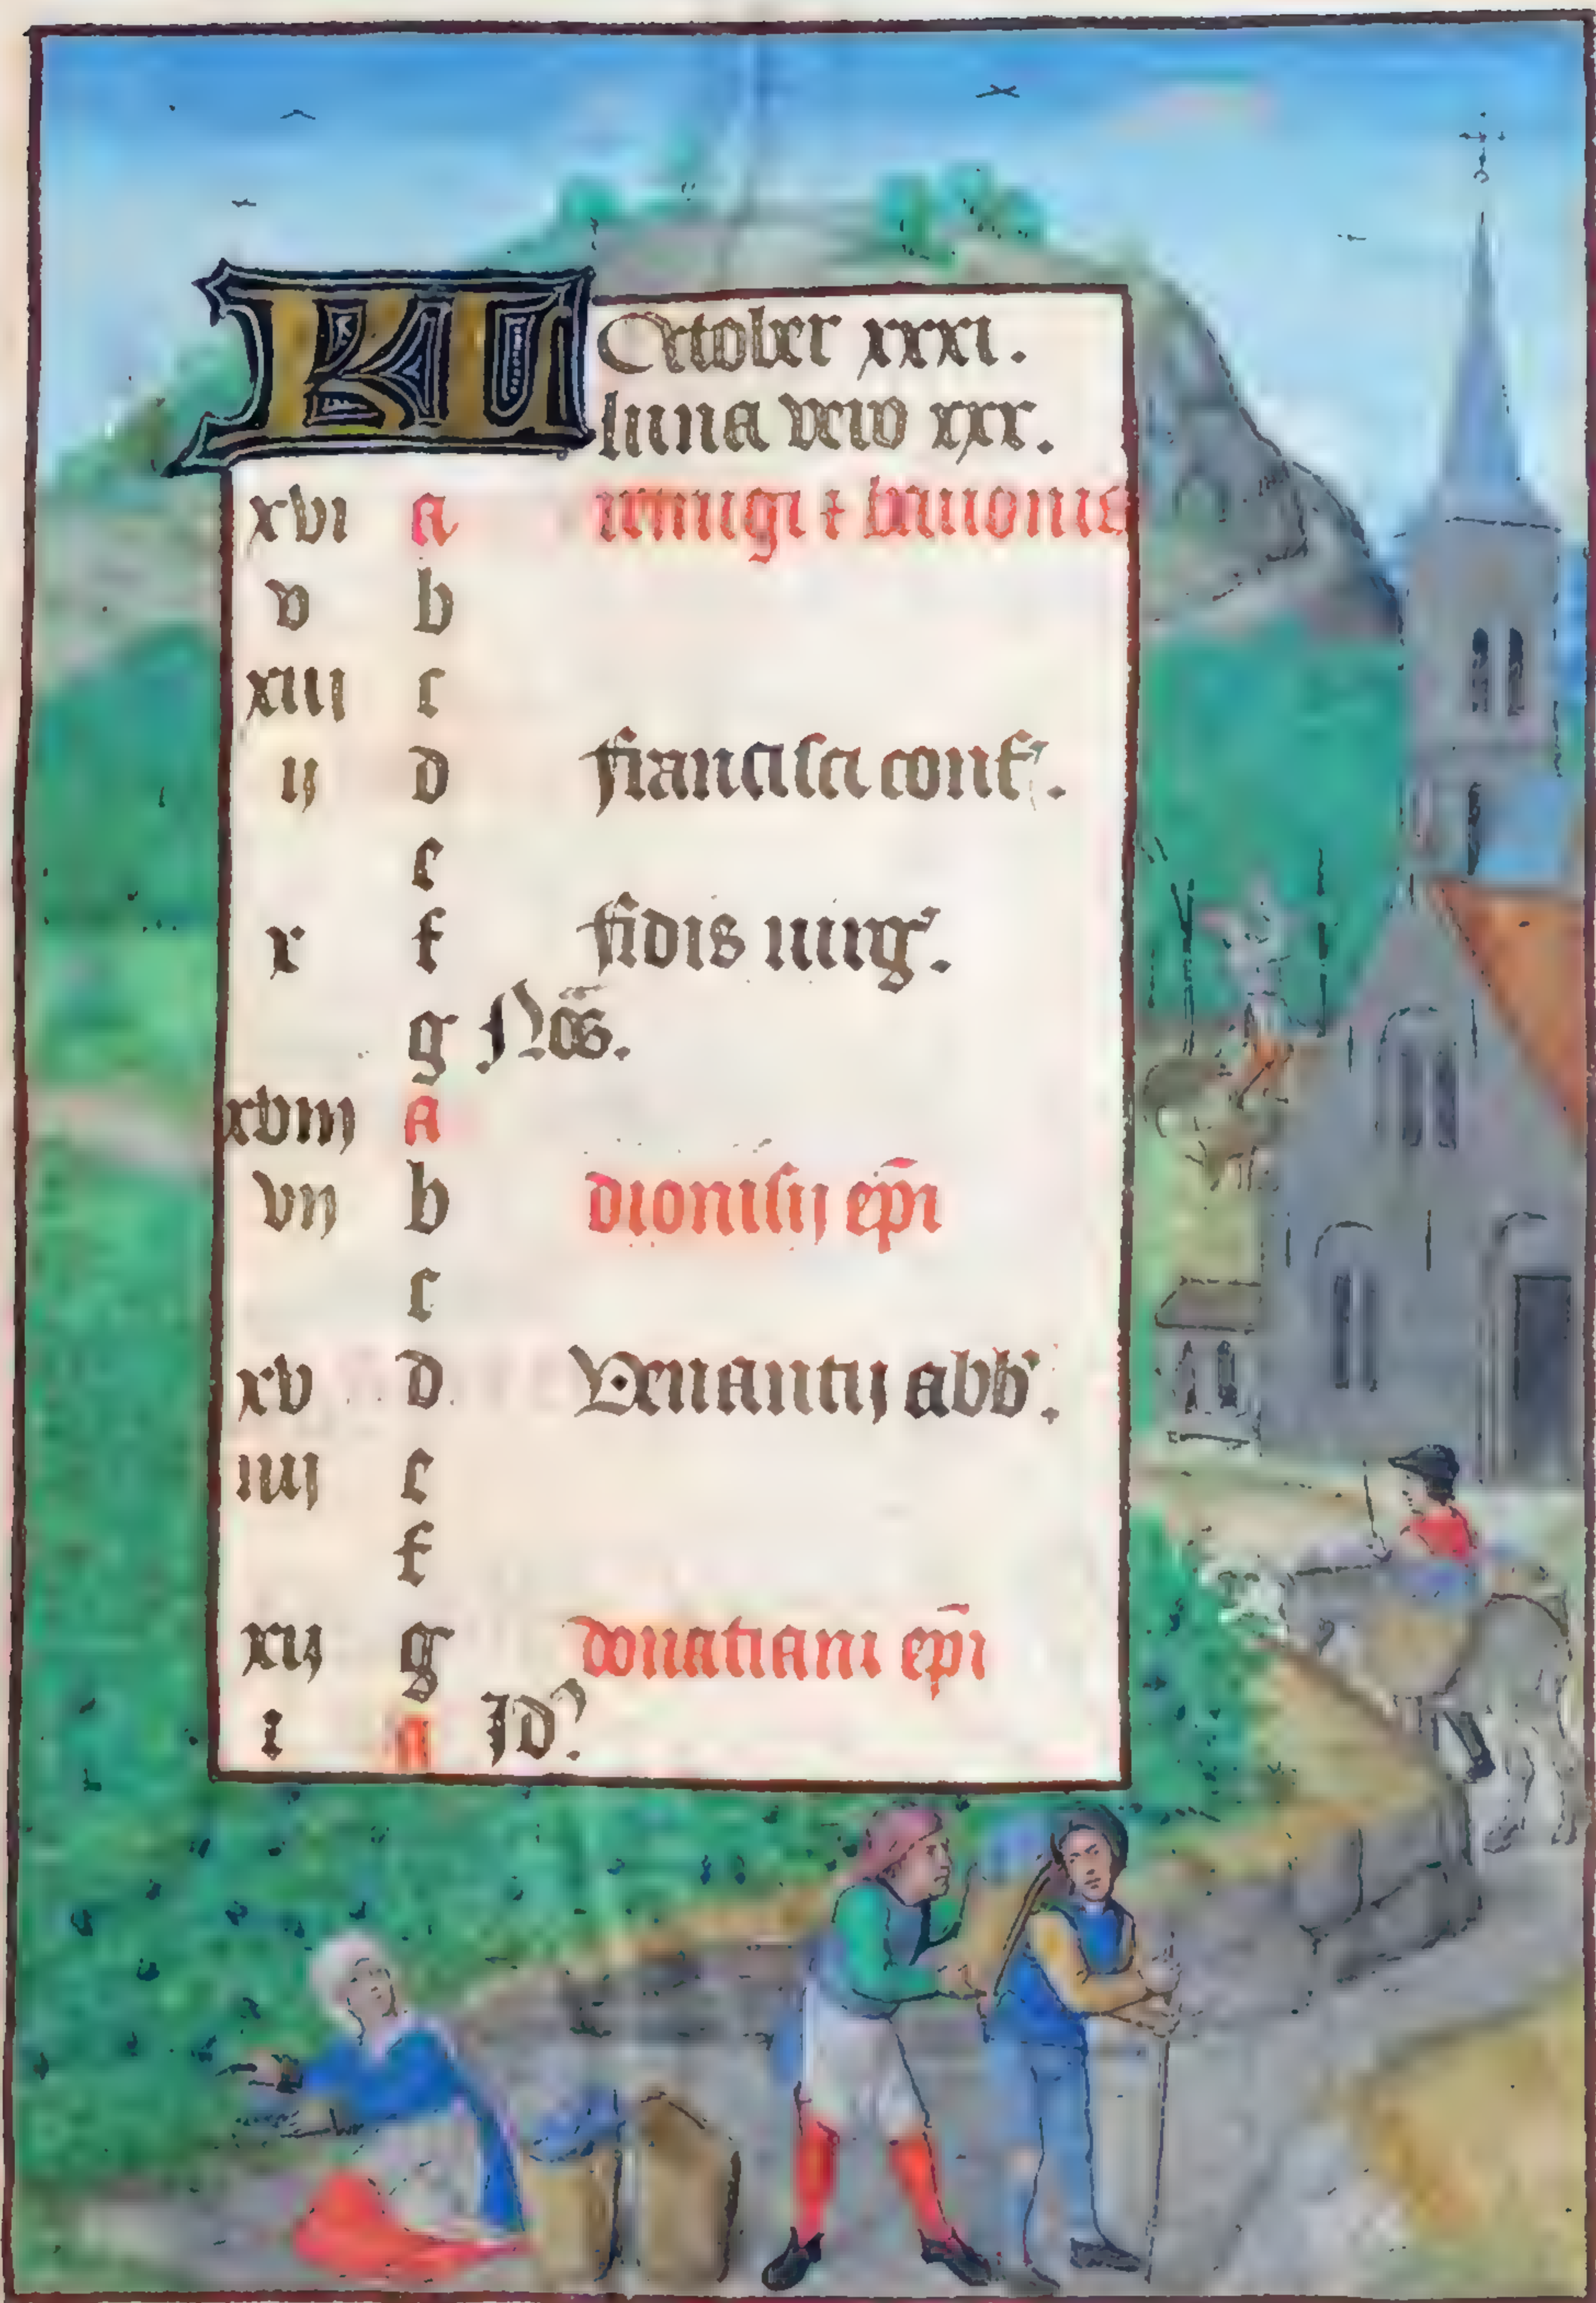 KL October xxxi.
luna vero xxx.
xvi a remigi ⁊ bauonis
v b
xiii c
ij d francisci conf'.
e
x f fidis uirg'.
g Nōs.
xviij a
vij b dionisij ep̄i
c
xv d Venantij abb'.
iiij e
f
xij g donatiani ep̄i
i a Id'.